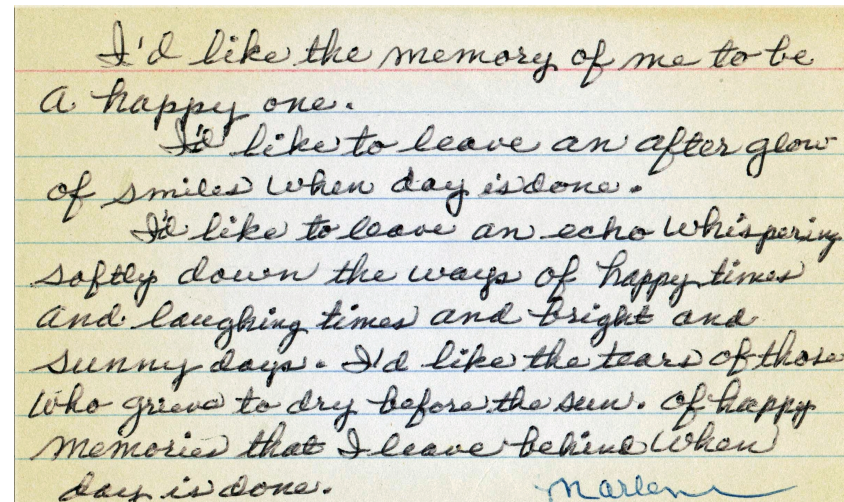 I'd like the memory of me to be
a happy one.
I'd like to leave an after glow
of smiles when day is done.
I'd like to leave an echo whispering
softly down the ways of happy times
and laughing times and bright and
sunny days. I'd like the tears of those
who grieve to dry before the sun. Of happy
memories that I leave behind when
day is done.
Marlene